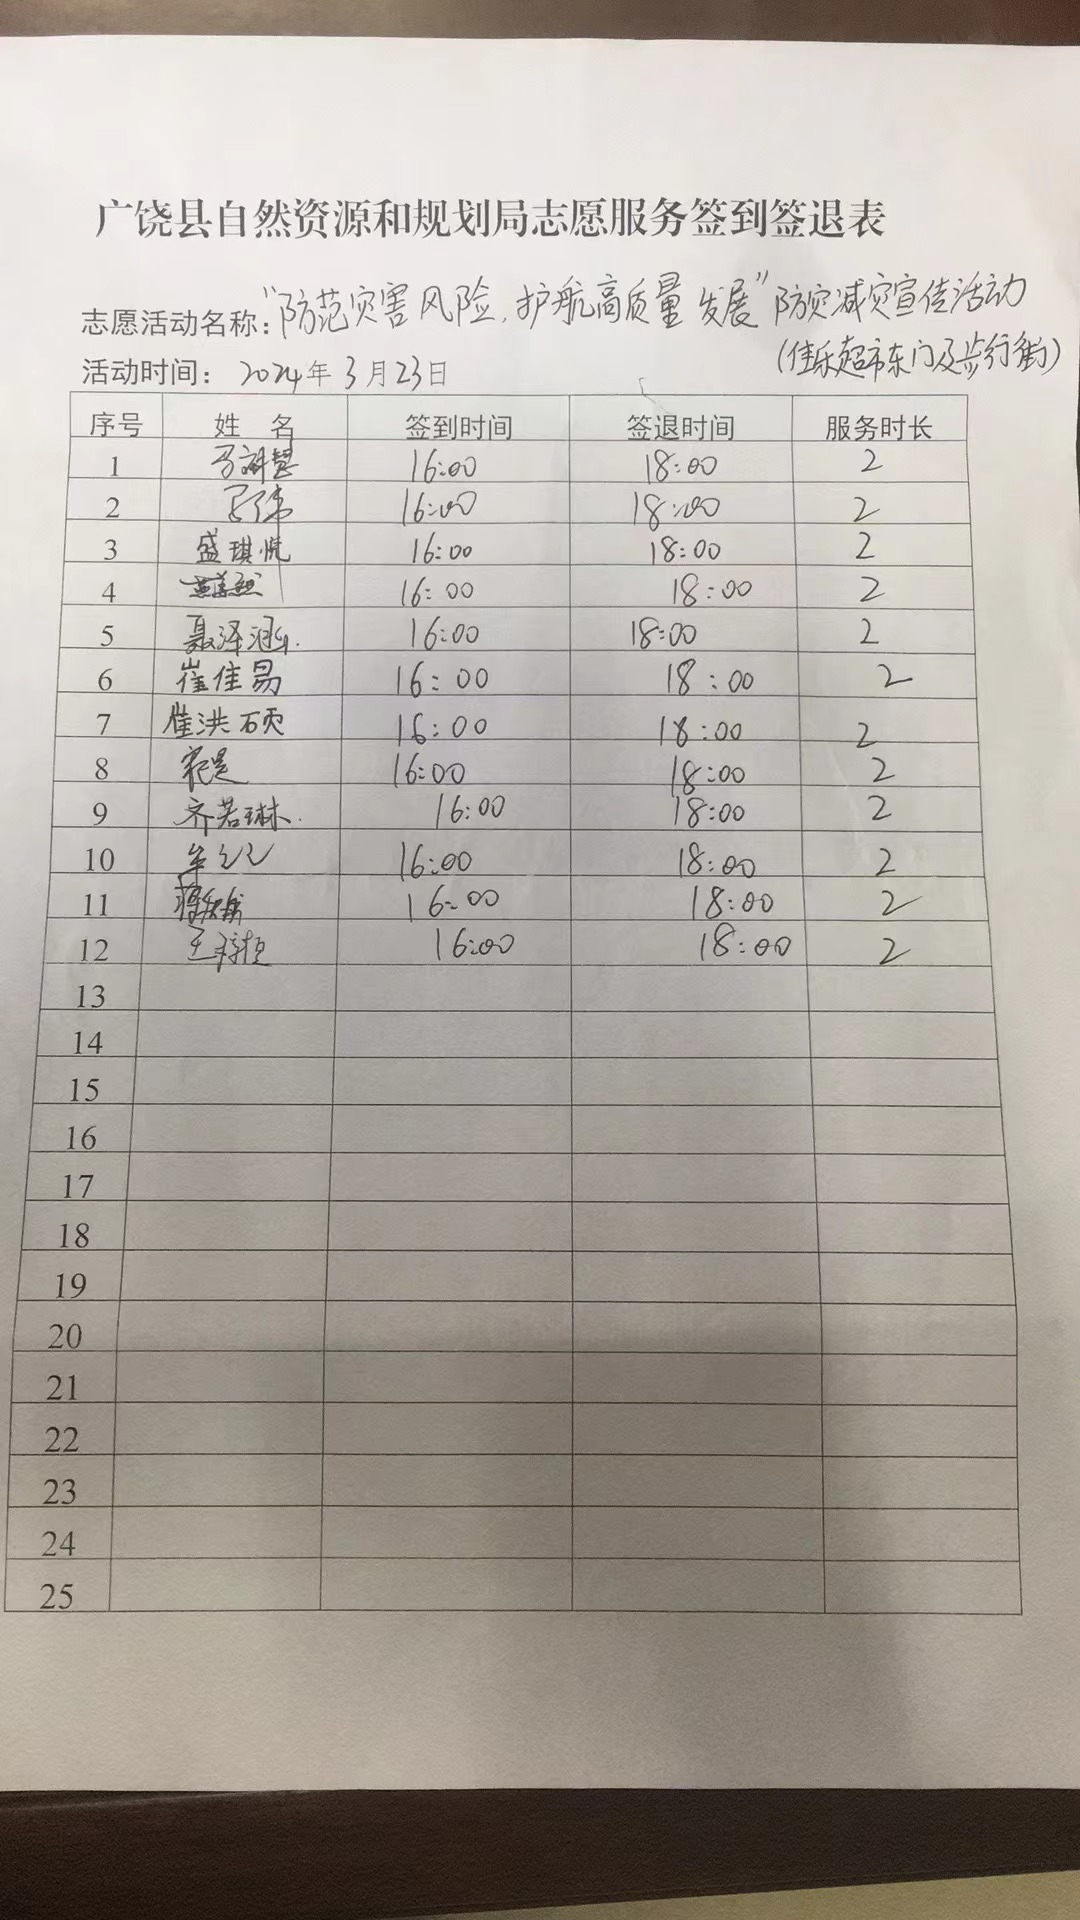 广饶县自然资源和规划局志愿服务签到签退表
志愿活动名称:"防范灾害风险,护航高质量发展"防灾减灾宣传活动
(佳乐超市东门及步行街)
活动时间: 2024年3月23日
序号 姓 名 签到时间 签退时间 服务时长
1 16:00 18:00 2
2 16:00 18:00 2
3 盛琪悦 16:00 18:00 2
4 16:00 18:00 2
5 聂泽涵 16:00 18:00 2
6 崔佳易 16:00 18:00 2
7 崔洪硕 16:00 18:00 2
8 16:00 18:00 2
9 齐若琳 16:00 18:00 2
10 16:00 18:00 2
11 16:00 18:00 2
12 16:00 18:00 2
13
14
15
16
17
18
19
20
21
22
23
24
25